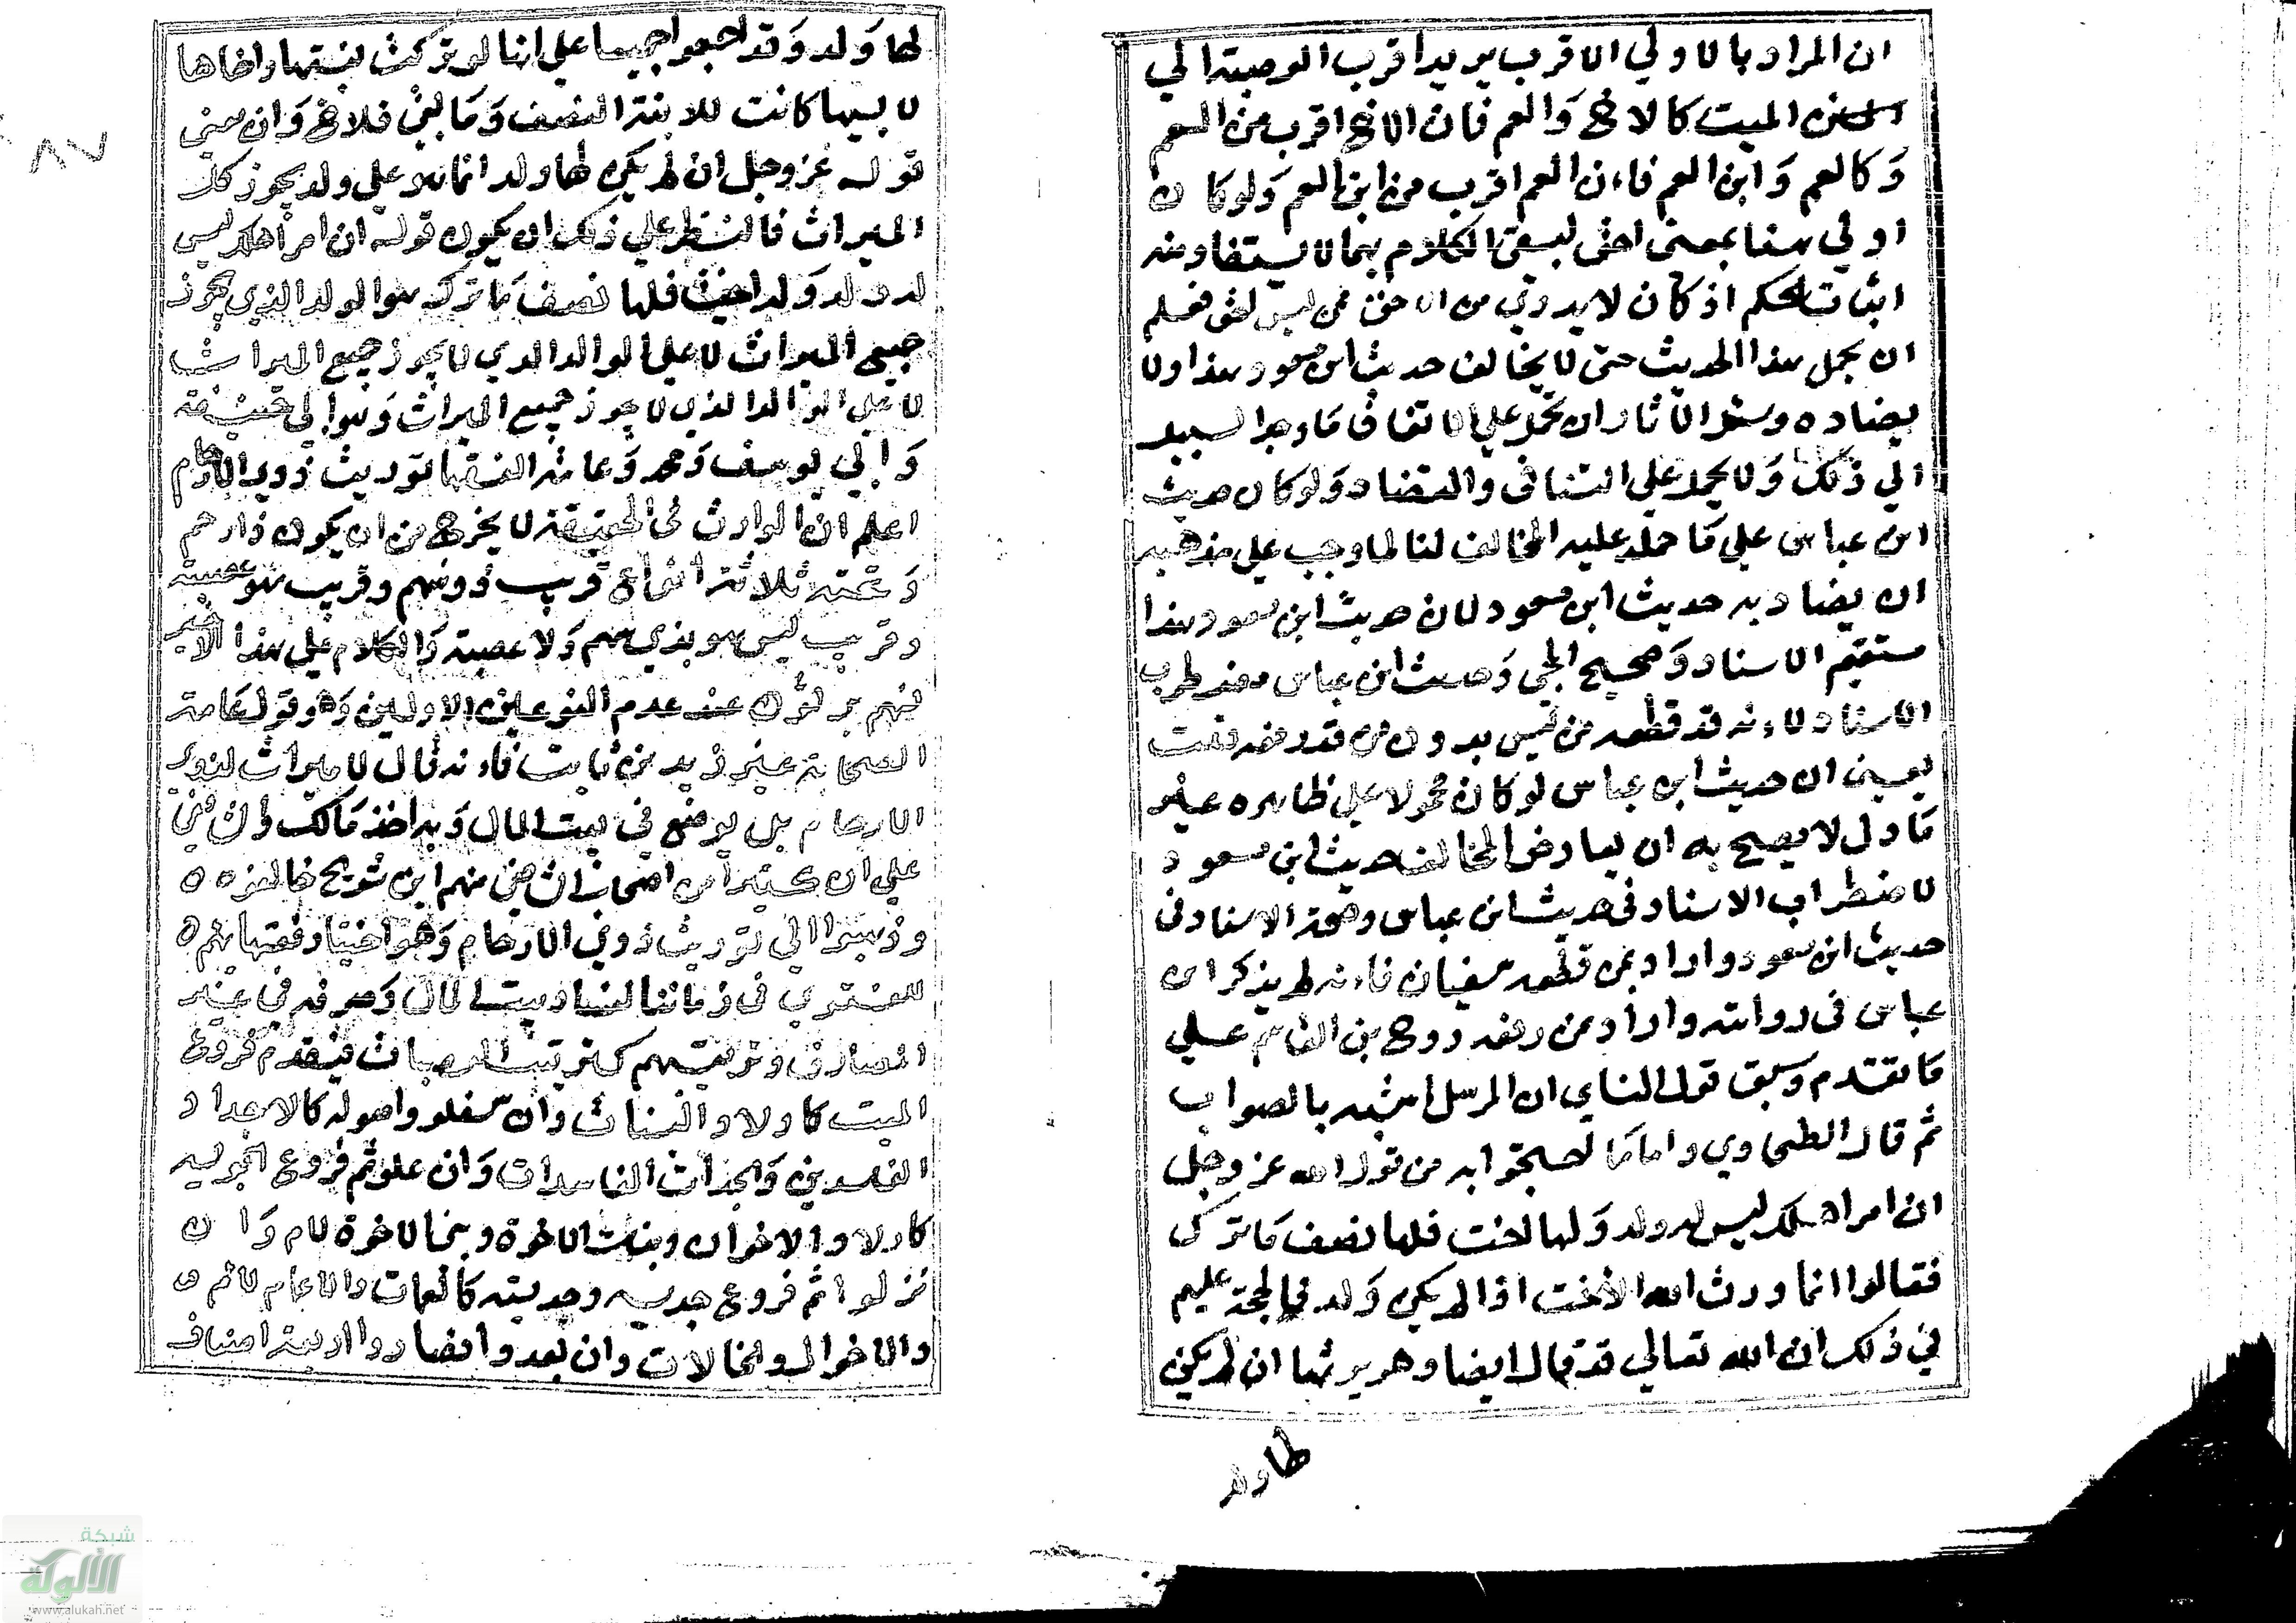 ان المراد بالاولي الاقرب يريد اقرب الوصبة الي
من الميت كالاخ وَالعم فان الاخ اقرب من العم
وَكالعم وَابن العم فاءن العم اقرب من ابن العم وَلوكان
اولي هنا بمعنى احق لبقي الكلام بهما لا يستفاد منه
اثبات الحكم اذ كان لا يدري من الاحق ممن ليس احق فعلم
ان يحمل هذا الحديث حتى لا يخالف حديث ابن مسعود هذا ولا
يضاده وسبيل الآثار ان تحمل علي الاتفاق مَا وجد السبيل
الي ذلك وَلا يحمل علي التنافى والتضاد وَلوكان حديث
ابن عباس علي مَا حمله عليه المخالف لنا لما وجب علي مذهبه
ان يضاد به حديث ابن مسعود لان حديث ابن مسعود هذا
مستقيم الاسناد وَصحيح المجي وَحديث ابن عباس مضطرب
الاسناد لاءنه قد قطعه من ليس بدون من قد رفعه فثبت
ان حديث ابن عباس لوكان محمولا علي ظاهره على
مَا دل لا يصح به ان يعارض المخالف حديث ابن مسعود
لاضطراب الاسناد فى حديث ابن عباس وصحة الاسناد فى
حديث ابن مسعود واراد بمن قطعه سفيان فاءنه لم يذكر ابن
عباس فى روايته واراد بمن رفعه روح بن القاسم علي
مَا تقدم وسبق قول النساي ان المرسل اشبه بالصواب
ثم قال الطحاوي واما مَا احتجوا به من قول الله عز وجل
ان امرا هلك ليس له ولد وَلها اخت فلها نصف مَا ترك
فقالوا انما ورث الله الاخت اذا لم يكن وَلد فالحجة عليهم
في ذلك ان الله تعالي قد قال ايضا وهو يرثها ان لم يكن
لها ولد
لها وَلد وَقد اجمعوا جميعا علي انها لو تركت ابنتها واخاها
لابيها كانت للابنة النصف وَمَا بقي فللاخ وَان معنى
قوله عز وجل ان لم يكن لها ولد انما هو علي ولد يحوز كل
الميراث فالنظر علي ذلك ان يكون قوله ان امرا هلك ليس
له ولد وَله اخت فلها نصف مَا ترك هو الولد الذي يحوز
جميع الميراث لا علي الولد الذي لا يحوز جميع الميراث
لا علي الولد الذي لا يحوز جميع الميراث وَهو ابي حنيفة
وَابي يوسف وَمحمد وَعامة الفقها توريث ذوي الارحام
اعلم ان الوارث فى الحقيقة لا يخرج من ان يكون ذا رحم
وَتحته ثلاثة انواع قريب ذو سهم وقريب هو عصبة
وقريب ليس هو بذي سهم وَلا عصبة وَالكلام علي هذا الاخير
فهم يرثون عند عدم النوعين الاولين وَهو قول عَامة
الصحابة غير زيد بن ثابت فاءنه قال لا ميراث لذوي
الارحام بل يوضع في بيت المال وَبه اخذ مَالك والشافعي
علي ان كثيرا من اصحاب الشافعي منهم ابن سريج خالفوه
وذهبوا الي توريث ذوي الارحام وَهو اختيار فقهائهم
للفتوي فى زماننا لفساد بيت المال وَصرفه في غير
المصارف وترتيبهم كترتيب العصبات فيقدم فروع
الميت كاولاد البنات وان سفلو واصوله كالاجداد
الفاسدين وَالجدات الفاسدات وَان علو ثم فروع ابويه
كاولاد الاخوات وبنات الاخوة وبني الاخوة لام وَان
نزلوا ثم فروع جديه وجديته كالعمات والاعمام لام
والاخوال والخالات وان بعدوا فصاروا اربعة اصناف
٨٧
شبكة
الألوكة
www.alukah.net